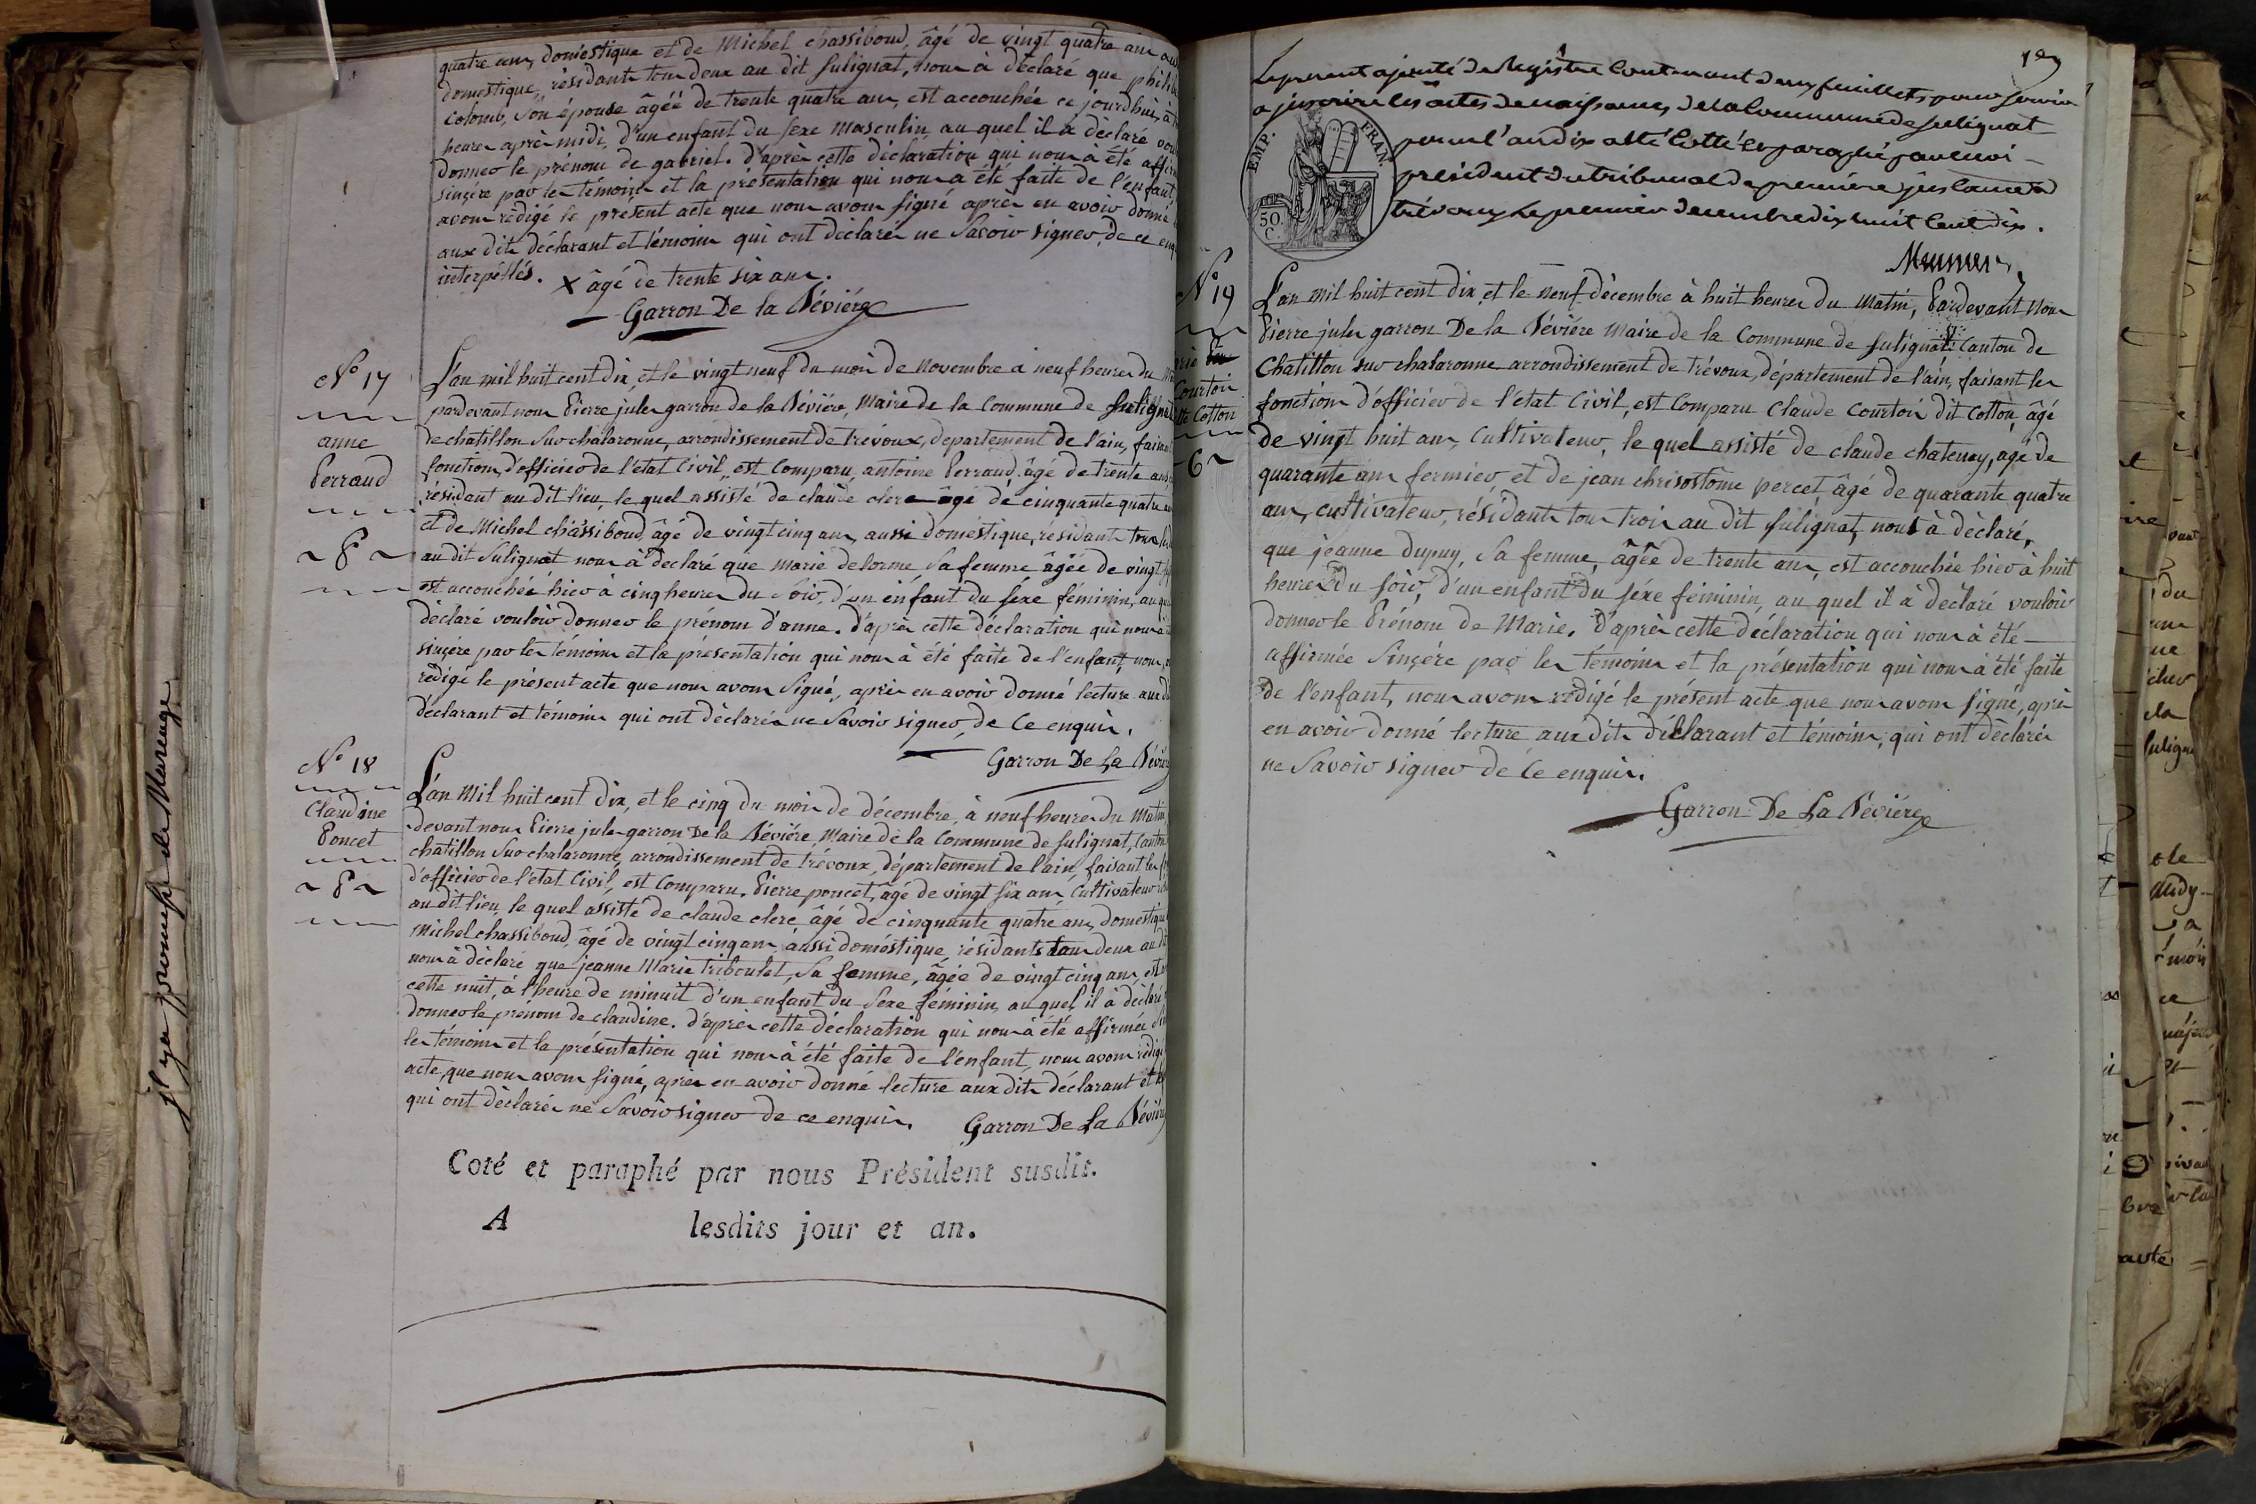 quatre ans, domestique et de Michel chassiboud, âgé de vingt quatre ans
domestique, résidants tous deux au dit sulignat, nous à déclaré que
colomb, son épouse âgéé de trente quatre ans, est accouchée ce jourdhui, à
heures après midi, d'un enfant du sexe masculin, au quel il a déclaré
donner le prénom de gabriel. d'après cette déclaration qui nous à été
sinçère par les témoins et la présentation qui nous à été faite de l'enfant,
avons rédigé le présent acte que nous avons signé après en avoir donné
aux dits déclarant et témoins qui ont déclarés ne savoir signer, de ce
interpéllés. X âgé de trente six ans.
Garron De la Béviére
N° 17
anne
Perraud
~ 8 ~
L'an mil huit cent dix, et le vingt neuf du mois de novembre à neuf heures du
pardevant nous Pierre jules garron de la Béviére, Maire de la Commune de sulignat
de chatillon sur chalaronne, arrondissement de trévoux, département de l'ain,
fonctions d'officier de l'état Civil, est Comparu antoine Perraud, âgé de trente ans
résidant au dit lieu, le quel assisté de claude clerc âgé de cinquante quatre
et de Michel chassiboud, âgé de vingt cinq ans, aussi doméstique, résidants tous
au dit Sulignat nous à déclaré que marie delorme sa femme âgéé de vingt
est accouchéé hier à cinq heures du soir, d'un enfant du séxe féminin, au
déclaré vouloir donner le prénom d'anne. d'après cette déclaration qui nous
sinçère par les témoins et la présentation qui nous à été faite de l'enfant, nous
rédigé le présent acte que nous avons signé, après en avoir donné lecture aux
déclarant et témoins qui ont déclarés ne savoir signer, de Ce enquis.
Garron De La
N° 18
Claudine
Poncet
~ 8 ~
L'an Mil huit cent dix, et le cinq du mois de décembre, à neuf heures du Matin,
devant nous Pierre jules garron De la Béviére, Maire de la Commune de sulignat,
chatillon sur chalaronne, arrondissement de trévoux, département de l'ain, faisant les
d'officier de l'état Civil, est Comparu. Pierre poncet, âgé de vingt six ans, Cultivateur
au dit lieu, le quel assisté de claude clerc âgé de cinquante quatre ans,
Michel chassiboud, âgé de vingt cinq ans, aussi doméstique, résidants tous deux au
nous à déclaré que jeanne Marie triboulet, sa femme, âgée de vingt cinq ans,
cette nuit, à l'heure de minuit d'un enfant du sexe féminin, au quel il à déclaré
donner le prénom de claudine. d'après cette déclaration qui nous à été affirmée
les témoins et la présentation qui nous à été faite de l'enfant, nous avons rédigé
acte, que nous avons signé, après en avoir donné lecture aux dits déclarant et
qui ont déclarés ne savoir signer de ce enquis. Garron De La
Coté et paraphé par nous Président susdit.
A lesdits jour et an.
Le présent ajouté de Registre Contenant deux feuillets, pour servir
a inscrire les actes de naissances, de la Commune de sulignat
pour l'an dix a été Cotté et paraphé par moi
président du tribunal de première instance de
trévoux, le premier décembre dix huit Cent dix.
EMP. FRAN.
50
C.
N° 19
Courtois
dit Cotton
~ 6 ~
L'an mil huit cent dix, et le neuf décembre à huit heures du Matin, Pardevant Nous
Pierre jules garron De la Béviére Maire de la Commune de sulignat Canton de
Chatillon sur chalaronne arrondissement de trévoux, département de l'ain, faisant les
fonctions d'officier de l'état Civil, est Comparu Claude Courtois dit Cotton, âgé
de vingt huit ans, Cultivateur, le quel assisté de claude chatenay, age de
quarante ans fermier, et de jean chrisostôme percet, âgé de quarante quatre
ans, cultivateur, résidants tous trois au dit sulignat, nous à déclaré,
que jeanne dupuy, sa femme, âgéé de trente ans, est accouchée hier à huit
heures du soir, d'un enfant du séxe féminin, au quel il à déclaré vouloir
donner le Prénom de Marie. D'après cette déclaration qui nous à été
affirmée Sinçére par les témoins et la présentation qui nous à été faite
de l'enfant, nous avons rédigé le présent acte que nous avons signé, après
en avoir donné lecture aux dits déclarant et témoins, qui ont déclarés
ne savoir signer de Ce enquis.
Garron De La Béviére